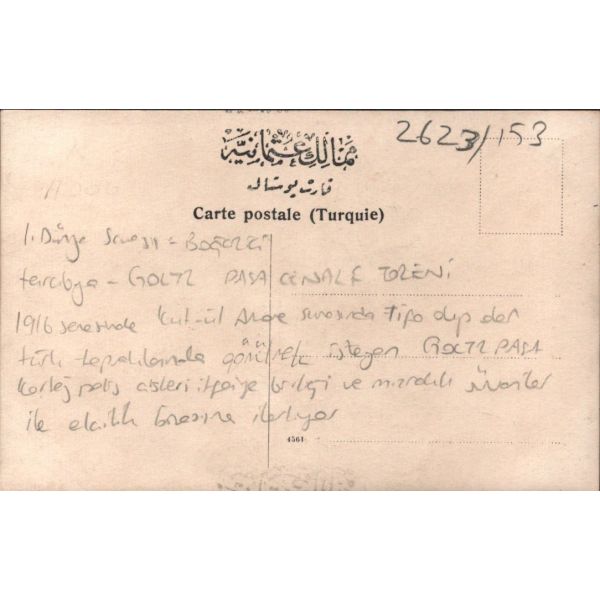 2623/153
ممالك عثمانيه
قارت پوستال
Carte postale (Turquie)
1. Dünya Savaşı - BOĞAZİÇİ
tarabya - GOLTZ PAŞA CENAZE TÖRENİ
1916 senesinde Kut-ül Amare sırasında Tifo olup ölen
türk topraklarında GÖMÜLMEK isteyen GOLTZ PAŞA
Kortej polis itfaiye birliği ve mızraklı süvariler
ile elçilik binasına ilerliyor
4561